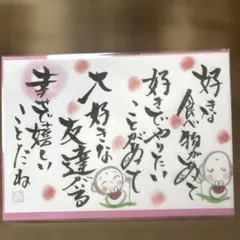 好きな
食べ物があって
好きでやりたい
ことがあって
大好きな
友達がいる
幸せで嬉しい
ことだね